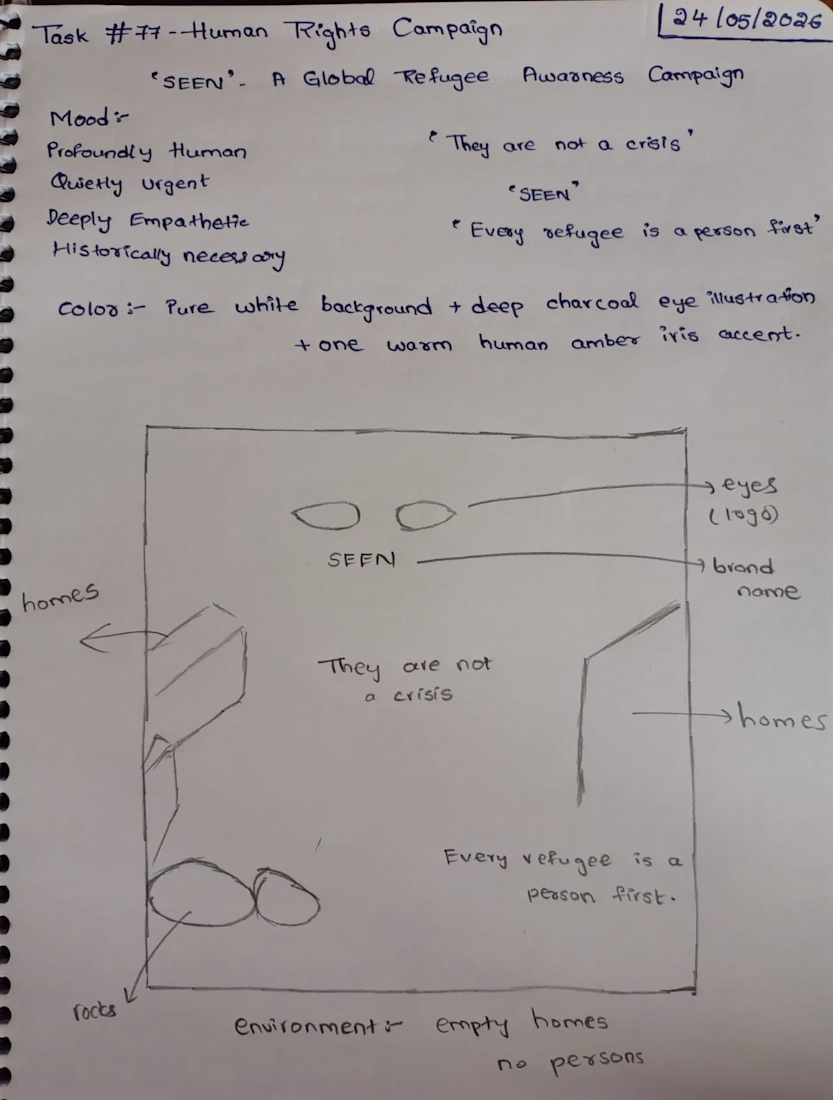 Task #77 -- Human Rights Campaign
24/05/2026
'SEEN' - A Global Refugee Awarness Campaign
Mood :-
Profoundly Human
Quietly urgent
Deeply Empathetic
Historically necessary
'They are not a crisis'
'SEEN'
'Every refugee is a person first'
Color :- Pure white background + deep charcoal eye illustration
+ one warm human amber iris accent.
eyes
(logo)
SEEN
brand
name
homes
They are not
a crisis
homes
Every refugee is a
person first.
rocks
environment :- empty homes
no persons